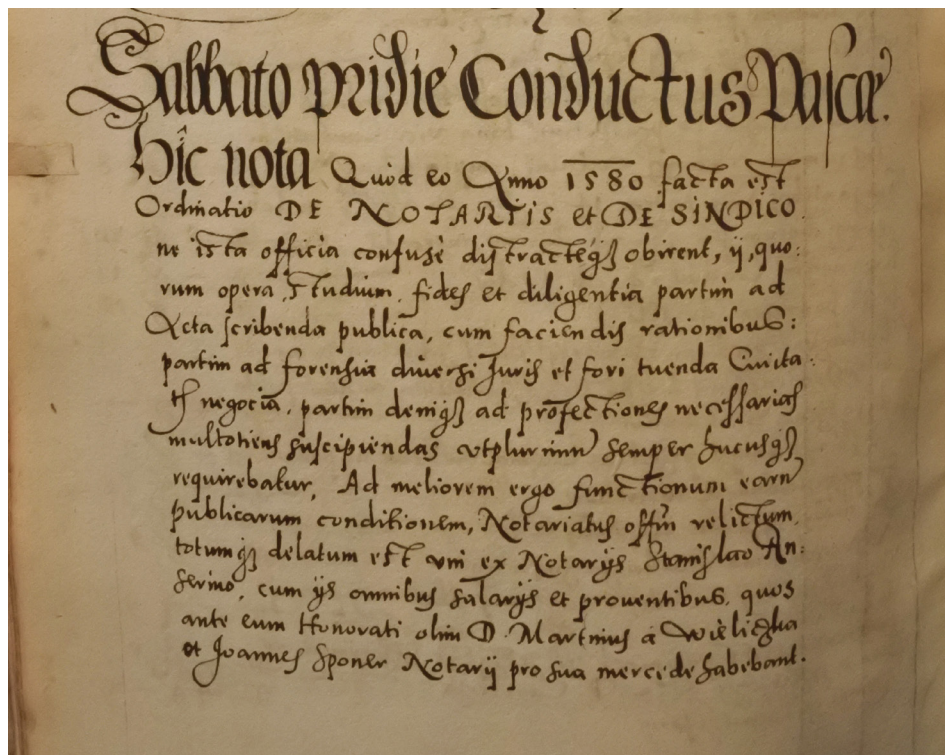 Sabbato pridie Conductus Pascæ.
Hîc nota Quod eo Anno 1580 facta est
Ordinatio DE NOTARIIS et DE SINDICO.
ne ista officia confusè distractéq3 obirent, ij, quo:
rum opera, studium, fides et diligentia partim ad
Acta scribenda publica, cum faciendis rationibus:
partim ad forensia diversi Juris et fori tuenda Civita:
tis negocia, partim deniq3 ad profectiones necessarias
multotiens suscipiendas utplurimum semper hucusq3
requirebatur, Ad meliorem ergo functionum earum
publicarum conditionem, Notariatus offm relictum,
totumq3 delatum est uni ex Notarijs Stanislao An:
serino, cum ijs omnibus salarijs et proventibus, quos
ante eum Honorati olim D. Martinus à Wieliczka
et Joannes Sponer Notarij pro sua mercede habebant.